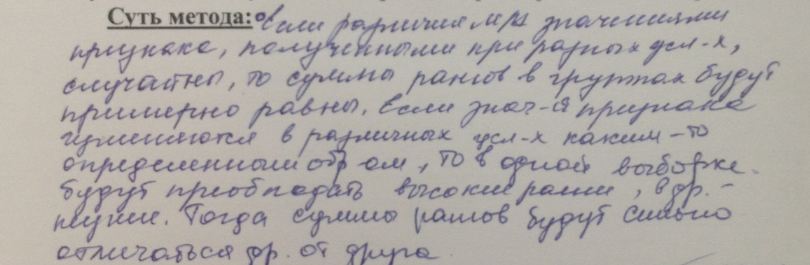 Суть метода: Если различия м/д значениями
признака, полученными при разных усл-х,
случайны, то суммы рангов в группах будут
примерно равны. Если знач-я признака
изменяются в различных усл-х каким-то
определенным обр-ом, то в одной выборке
будут преобладать высокие ранги, в др. -
низкие. Тогда суммы рангов будут сильно
отличаться др. от друга.